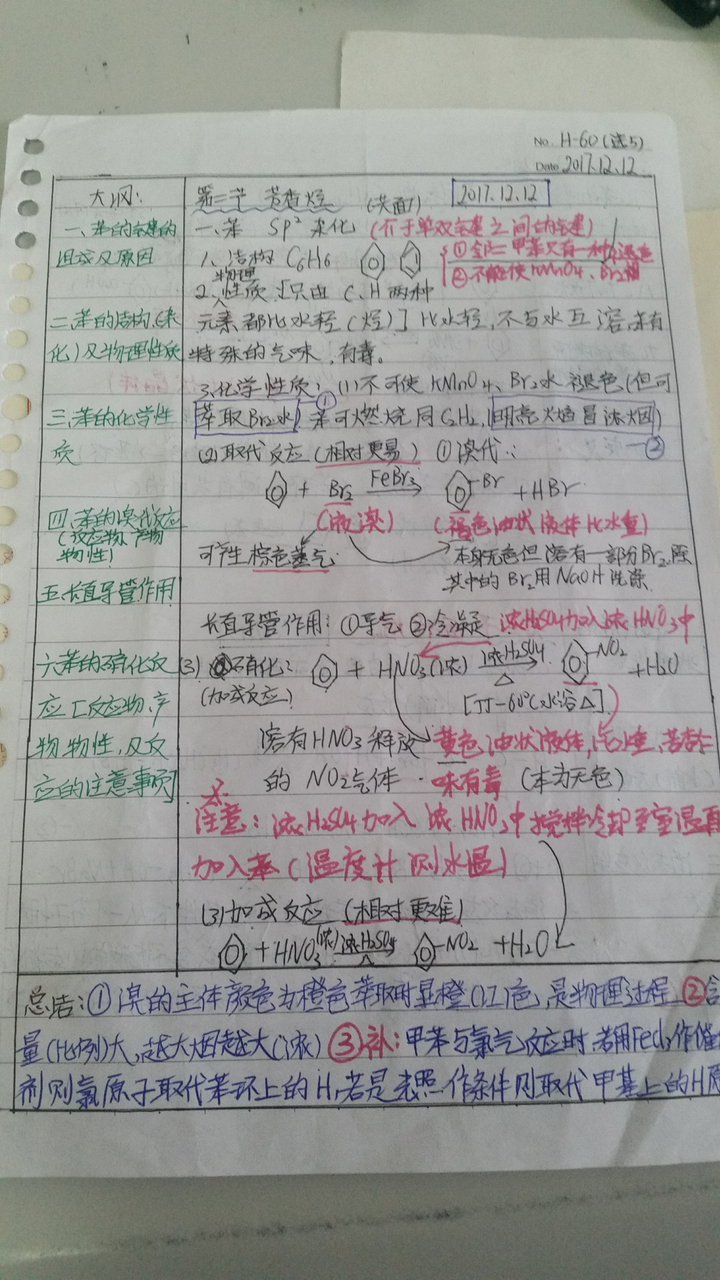 No. H-60(选5)
Date 2017.12.12
大纲:
一、苯的的键的
组成及原因
二、苯的结构、(杂
化)及物理性质
三、苯的化学性
质
四、苯的溴代反应
(反应物、产物
物性)
五、长直导管作用
六、苯的硝化反
应[反应物、产
物物性,及反
应的注意事项]
第二节 芳香烃 (共面)
2017.12.12
一、苯 SP² 杂化 (介于单双键之间的键)
1、结构 C6H6
①邻二甲苯只有一种
②不能使KMnO4、Br2
2、物理性质 [只由 C、H 两种
元素都比水轻(烃)] 比水轻,不与水互溶,有
特殊的气味,有毒。
3、化学性质: (1)不可使 KMnO4、Br2水褪色(但可
萃取Br2水) ① 苯可燃烧同C2H2,(明亮火焰冒浓烟)
(2)取代反应(相对更易) ①溴代: ②
+ Br2 FeBr3→ -Br + HBr
(液溴) (褐色油状液体比水重)
可产生棕色蒸气 本身无色但溶有一部分Br2,除
其中的Br2用NaOH洗涤
长直导管作用: ①导气 ②冷凝 浓H2SO4加入浓HNO3中
(3) 硝化: + HNO3(浓) 浓H2SO4 △ → -NO2 + H2O
(加成反应) [55-60℃水浴△]
溶有HNO3释放→黄色油状液体,比水重,苦杏仁
的 NO2气体. 味有毒 (本为无色)
注意:浓H2SO4加入浓HNO3中搅拌冷却至室温再
加入苯(温度计测水温)
(3)加成反应 (相对更难)
+ HNO3(浓) 浓H2SO4 △ → -NO2 + H2O
总结:①溴的主体颜色为橙色萃取时显橙(红)色,是物理过程 ②含
量(比例)大,越大烟越大(浓) ③补:甲苯与氯气反应时,若用FeCl3作催
剂则氯原子取代苯环上的H,若是光照作条件则取代甲基上的H原